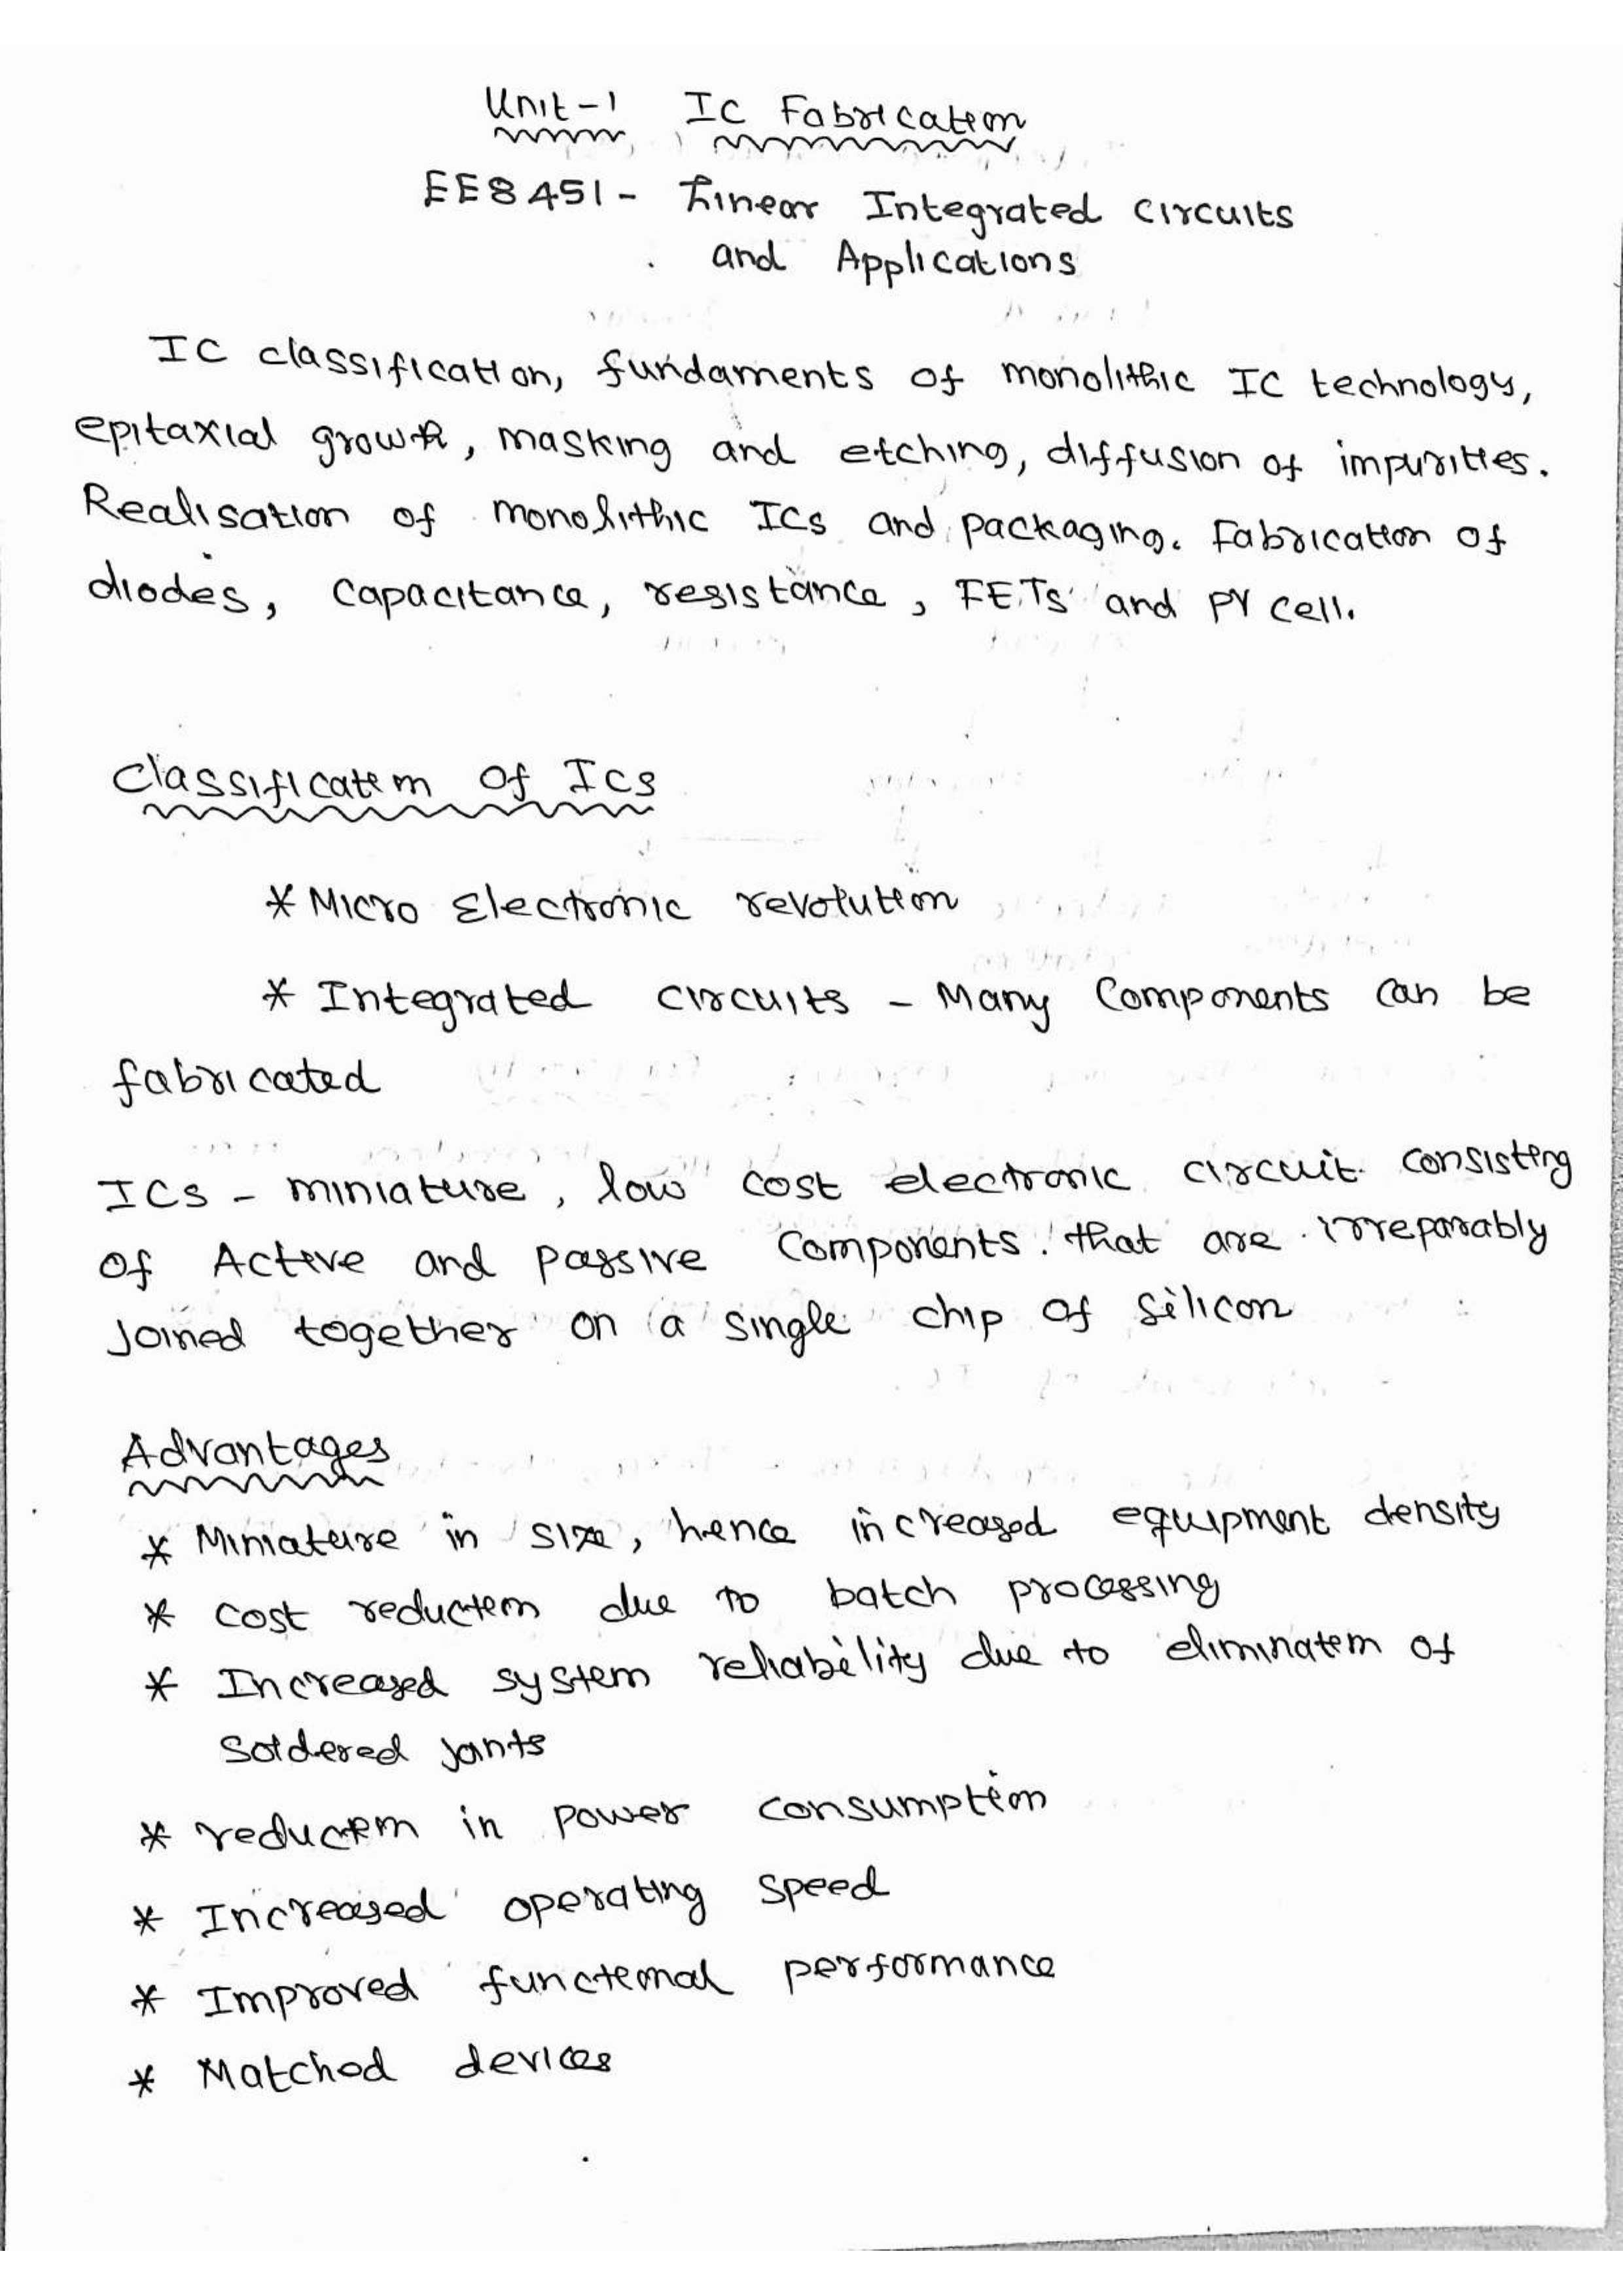 Unit-1 IC Fabrication
EE8451- Linear Integrated circuits
and Applications
IC classification, fundaments of monolithic IC technology,
epitaxial growth, masking and etching, diffusion of impurities.
Realisation of monolithic ICs and packaging. Fabrication of
diodes, capacitance, resistance, FETs and PV cell.
Classification of ICs
* Micro Electronic revolution
* Integrated circuits - Many Components can be
fabricated
ICs - miniature, low cost electronic circuit consisting
of Active and passive components that are irreparably
joined together on a single chip of silicon
Advantages
* Miniature in size, hence increased equipment density
* cost reduction due to batch processing
* Increased system reliability due to elimination of
soldered joints
* reduction in power consumption
* Increased operating speed
* Improved functional performance
* Matched devices